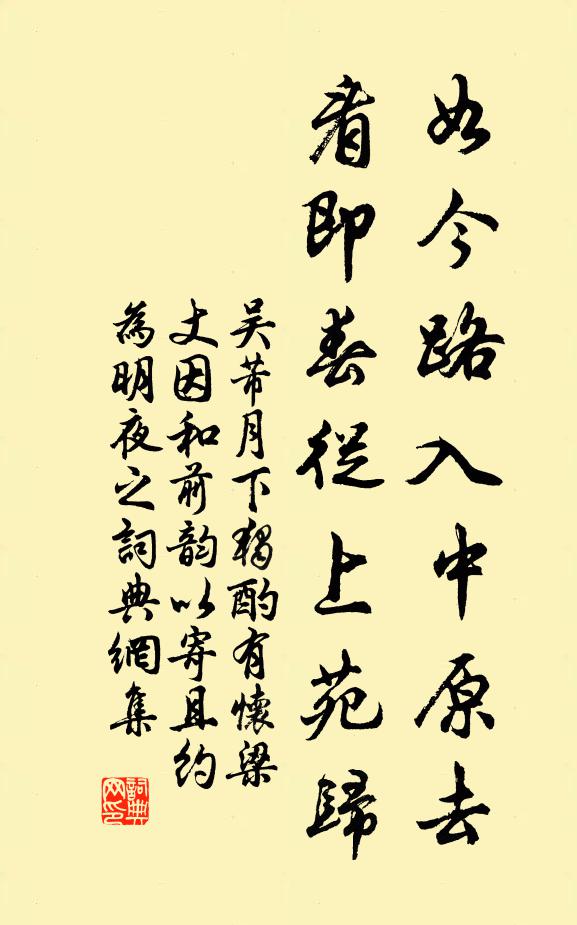 如今路入中原去
看即春從上苑歸
吴芾月下獨酌有懷梁
丈因和前韵以寄且約
為明夜之詞典網集
詞典网印